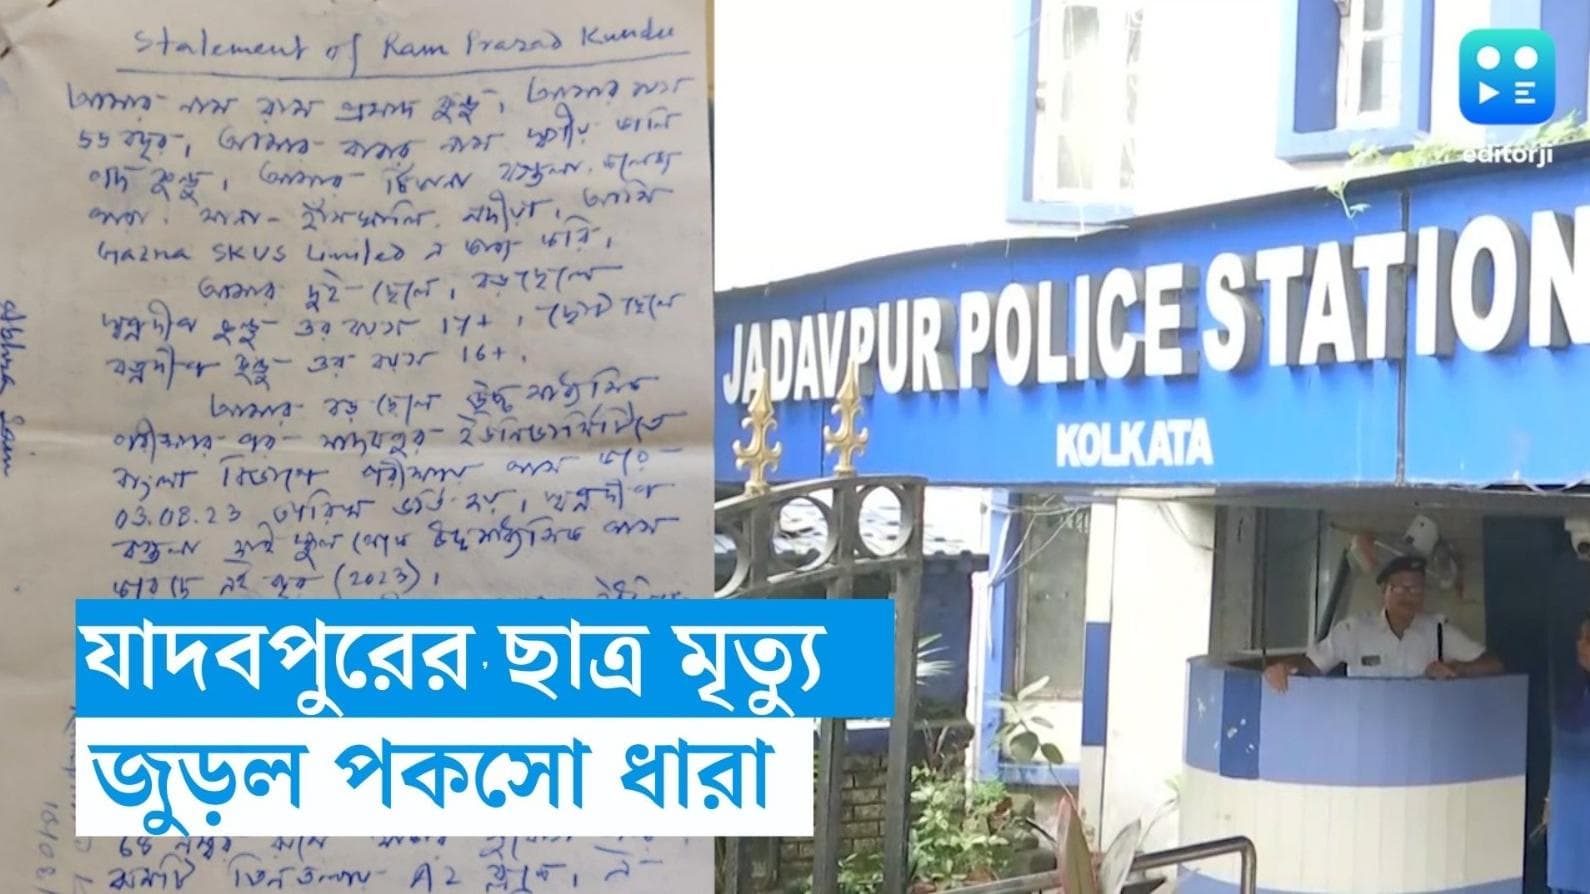 Statement of Ram Prasad Kundu
আমার নাম রাম প্রসাদ কুন্ডু, আমার বয়স
55 বছর, আমার বাবার নাম স্বর্গীয়
পদ কুন্ডু, আমার ঠিকানা বগুলা, কলেজ
পাড়া, থানা- হাঁসখালি, নদীয়া, আমি
Gazna SKUS Limited এ কাজ করি,
আমার দুই ছেলে, বড় ছেলে
স্বপ্নদীপ কুন্ডু ওর বয়স 17+, ছোট ছেলে
রত্নদীপ কুন্ডু ওর বয়স 16+,
আমার বড় ছেলে উচ্চ মাধ্যমিক
পরীক্ষার পর যাদবপুর ইউনিভার্সিটিতে
বাংলা বিভাগে পরীক্ষায় পাস করে
03.08.23 তারিখ ভর্তি হয়, স্বপ্নদীপ
বগুলা হাই স্কুল থেকে উচ্চমাধ্যমিক পাস
করেছে এই বছর (2023),
যাদবপুরের ছাত্র মৃত্যু
জুড়ল পকসো ধারা
68 নম্বর রুমে
রুমটি তিনতলায় A2 ব্লকে,
JADAVPUR POLICE STATION
KOLKATA
editorji